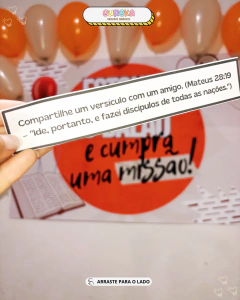 Compartilhe um versículo com um amigo. (Mateus 28:19
– "Ide, portanto, e fazei discípulos de todas as nações.")
e cumpra
uma missão!
ARRASTE PARA O LADO